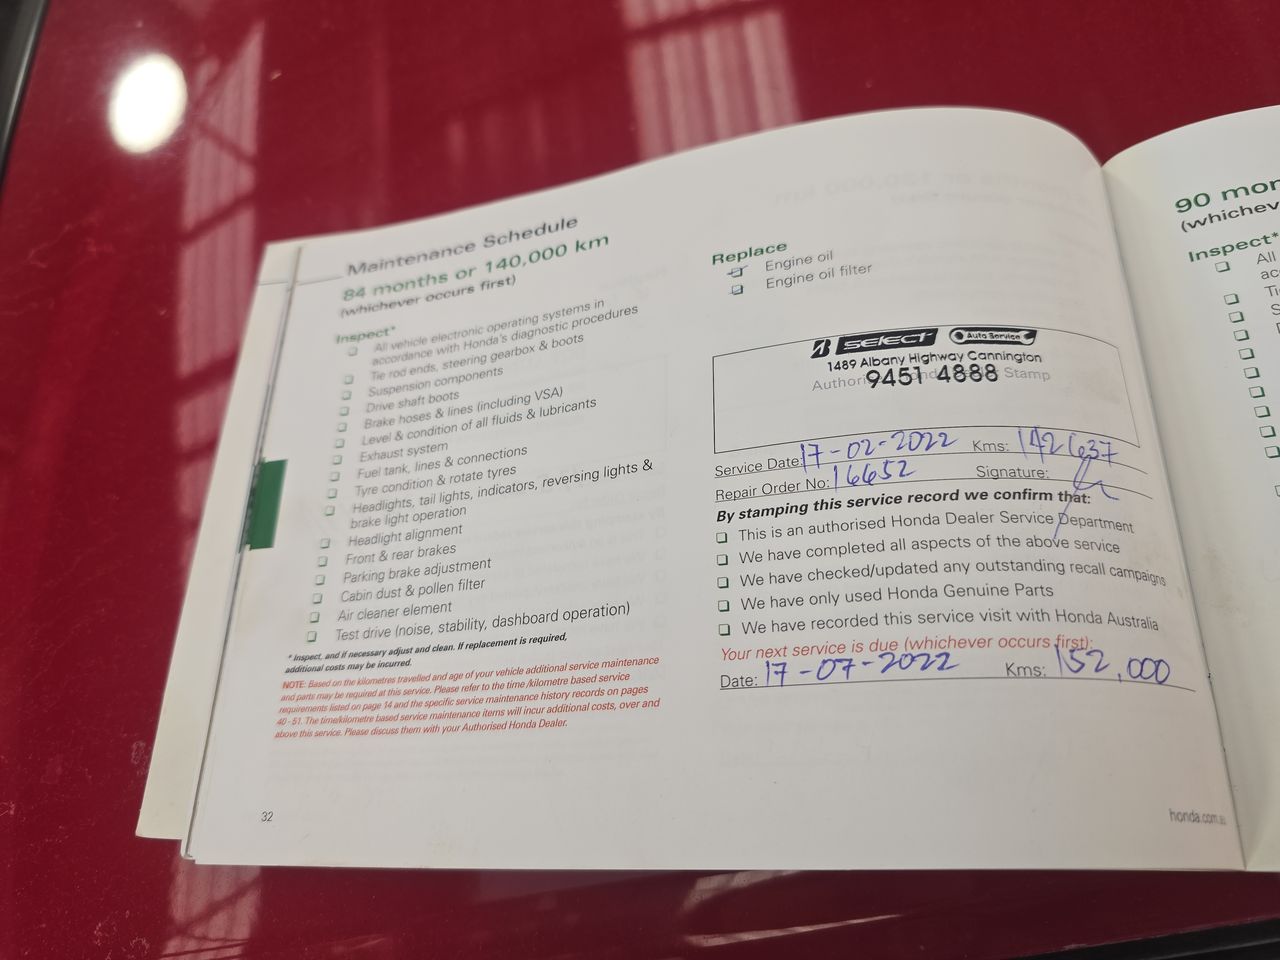 Maintenance Schedule
84 months or 140,000 km
(whichever occurs first)
Inspect*
All vehicle electronic operating systems in
accordance with Honda's diagnostic procedures
Tie rod ends, steering gearbox & boots
Suspension components
Drive shaft boots
Brake hoses & lines (including VSA)
Level & condition of all fluids & lubricants
Exhaust system
Fuel tank, lines & connections
Tyre condition & rotate tyres
Headlights, tail lights, indicators, reversing lights &
brake light operation
Headlight alignment
Front & rear brakes
Parking brake adjustment
Cabin dust & pollen filter
Air cleaner element
Test drive (noise, stability, dashboard operation)
* Inspect, and if necessary adjust and clean. If replacement is required,
additional costs may be incurred.
NOTE: Based on the kilometres travelled and age of your vehicle additional service maintenance
and parts may be required at this service. Please refer to the time /kilometre based service
requirements listed on page 14 and the specific service maintenance history records on pages
40 - 51. The time/kilometre based service maintenance items will incur additional costs, over and
above this service. Please discuss them with your Authorised Honda Dealer.
32
Replace
Engine oil
Engine oil filter
SELECT Auto Service
1489 Albany Highway Cannington
9451 4888
Stamp
Service Date: 17-02-2022 Kms: 142637
Repair Order No: 16652 Signature:
By stamping this service record we confirm that:
This is an authorised Honda Dealer Service Department
We have completed all aspects of the above service
We have checked/updated any outstanding recall campaigns
We have only used Honda Genuine Parts
We have recorded this service visit with Honda Australia
Your next service is due (whichever occurs first):
Date: 17-07-2022 Kms: 152,000
honda.com.au
90 mon
(whichev
Inspect*
All
ac